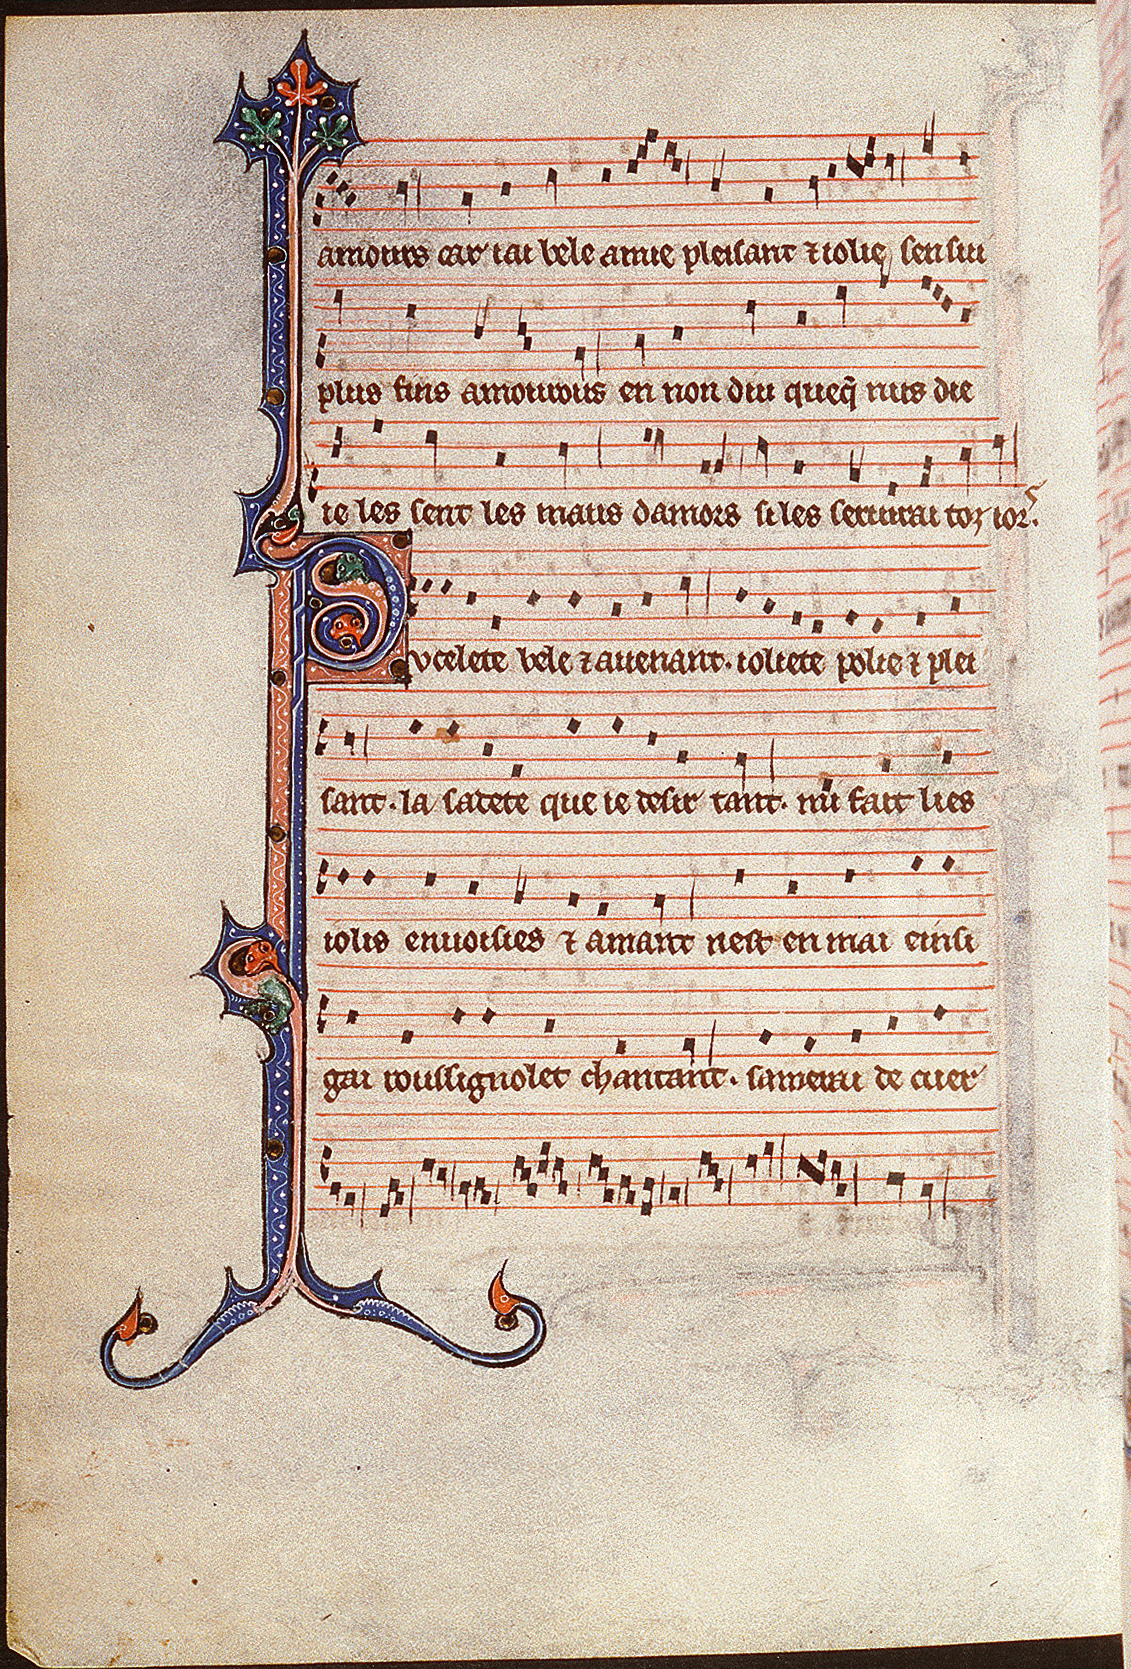 amours car iai bele amie pleisant ⁊ iolie sen sui
plus fins amourous en non diu queq̄ nus die
ie les sent les maus damors si les seruirai toz iors.
Ducelete bele ⁊ auenant. ioliete polie ⁊ plei
sant. la sadete que ie desir tant. mi fait lies
iolis enuoisies ⁊ amant nest en mai einsi
gai roussignolet chantant. samerai de cuer